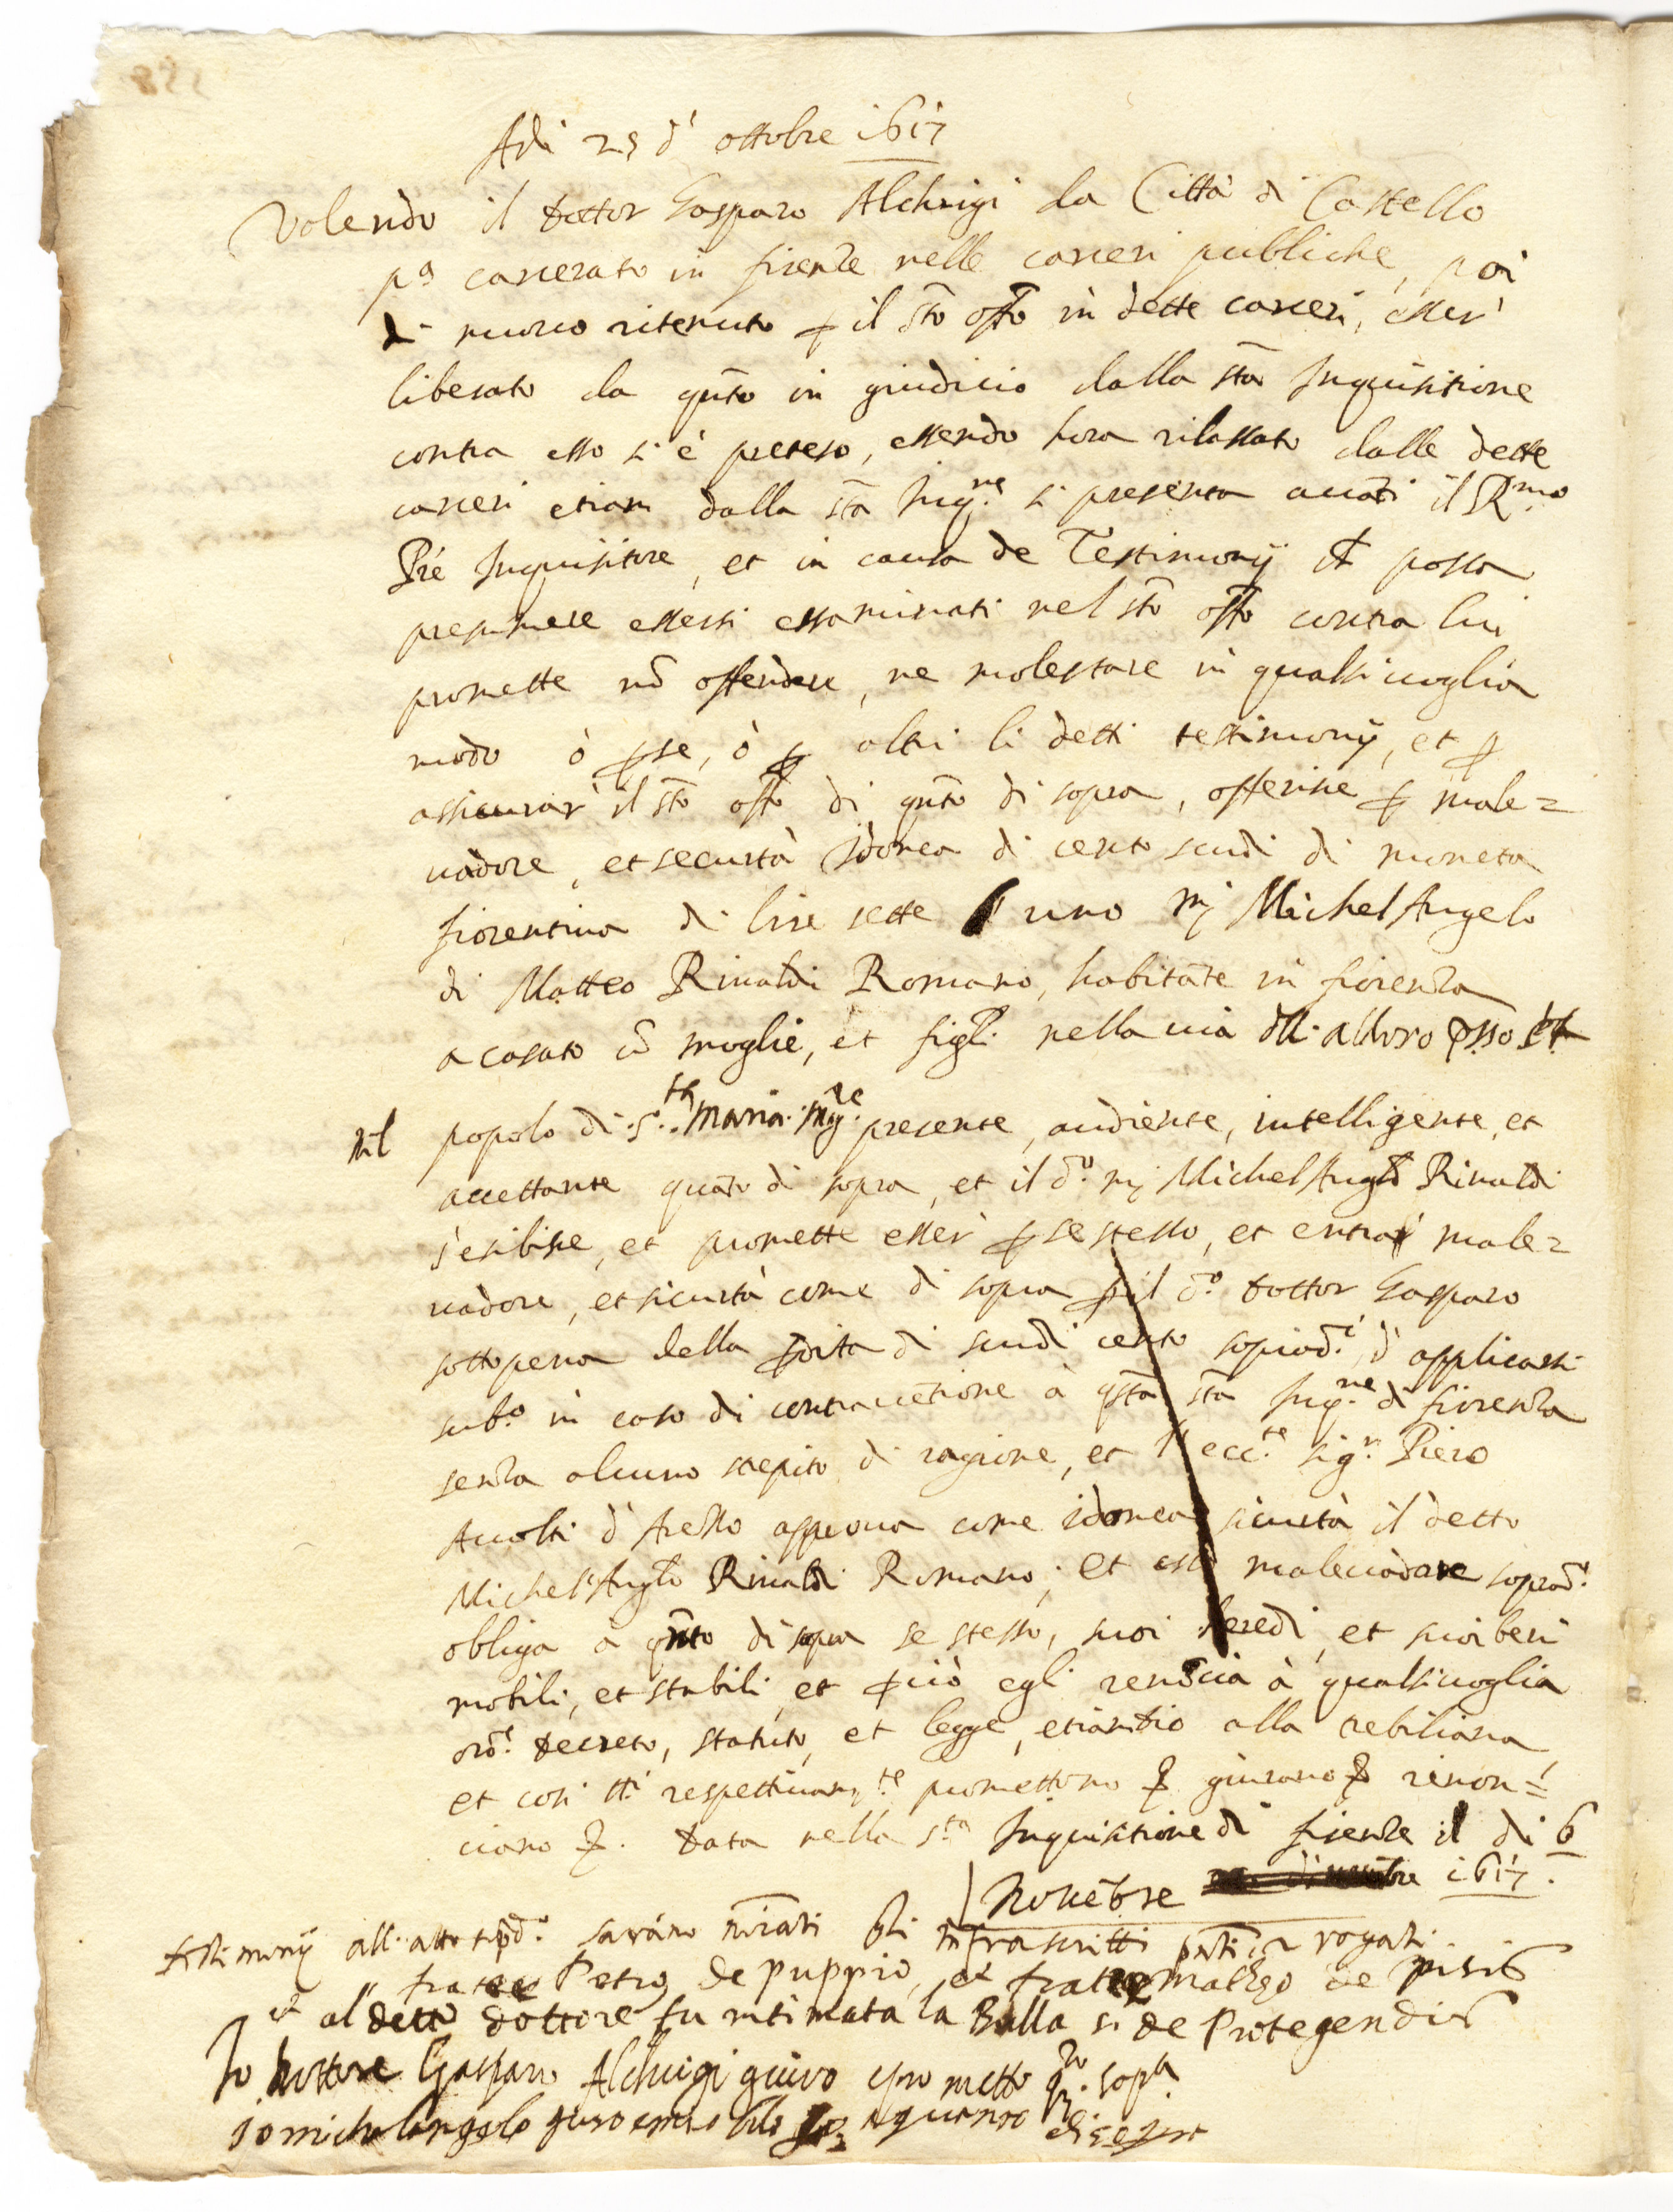 Adi 25 d' ottobre 1617
Volendo il Dottor Gasparo Alchrigi da Città di Castello
pª carcerato in firenze nelle carceri publiche, poi
di nuovo ritenuto p il sto offo in dette carceri, esser'
liberato da qnto in giudicio dalla sta Inquisitione
contra esso si è preteso, essendo hora rilassato dalle dette
carceri etiam dalla sta Inq.ne si presenta auati il R.mo
Pre Inquisitore, et in causa de Testimonij che possa
presumere essersi essaminati nel sto offo contra lui
promette nō offendere, ne molestare in qualsiuoglia
modo ò p se, ò p altri li detti testimonij, et p
assicurar' il sto offo di qnto di sopra, offerisce p male=
uadore, et securtà idonea di cento scudi di moneta
fiorentina di lire sette l'uno mj Michel Angelo
di Matteo Rinaldi Romano, habitāte in fiorenza
acasato cō moglie, et figli nella uia dell' alloro
nel popolo di S.ta Maria Mag.re presente, audiente, intelligente, et
accettante quāto di sopra, et il d.o mj Michel Anglo Rinaldi
s'esibisce, et promette esser' p se stesso, et entrar male=
uadore, et sicurtà come di sopra p il d.o Dottor Gasparo
sotto pena della pdita di scudi cento soprad.i, d' applicarsi
sub.o in caso di contrauētione à qsta sta Inq.ne di fiorenza
senza alcuno strepito di ragione, et l' ecc.te sig.r Piero
Accolti d' Arezzo approua come idonea sicurtà il detto
Michel Anglo Rinaldi Romano; et esso maleuadore soprad.o
obliga à qnto di sopra se stesso, suoi heredi, et suoi beni
mobili, et stabili, et p ciò egli renūcia à qualsiuoglia
ord.e Decreto, statuto, et legge, etiamdio alla trebiliana
et così tti respettiuam.te promettono giurano renon=
ciano. Data nella s.ta Inquisitione di firenze il di 6
Nouēbre 1617.
testimonij all' atto sopd.o sarāno noīati gli infrascritti rogati
frater Petro de puppio, et frater matheo de pisis
et al detto dottore fu intimata la Bolla si de Protegendis
Io Dottore Gasparo Alchrigi giuro e prometto q.to sop.a
io michelangelo giuro quanto di sopra